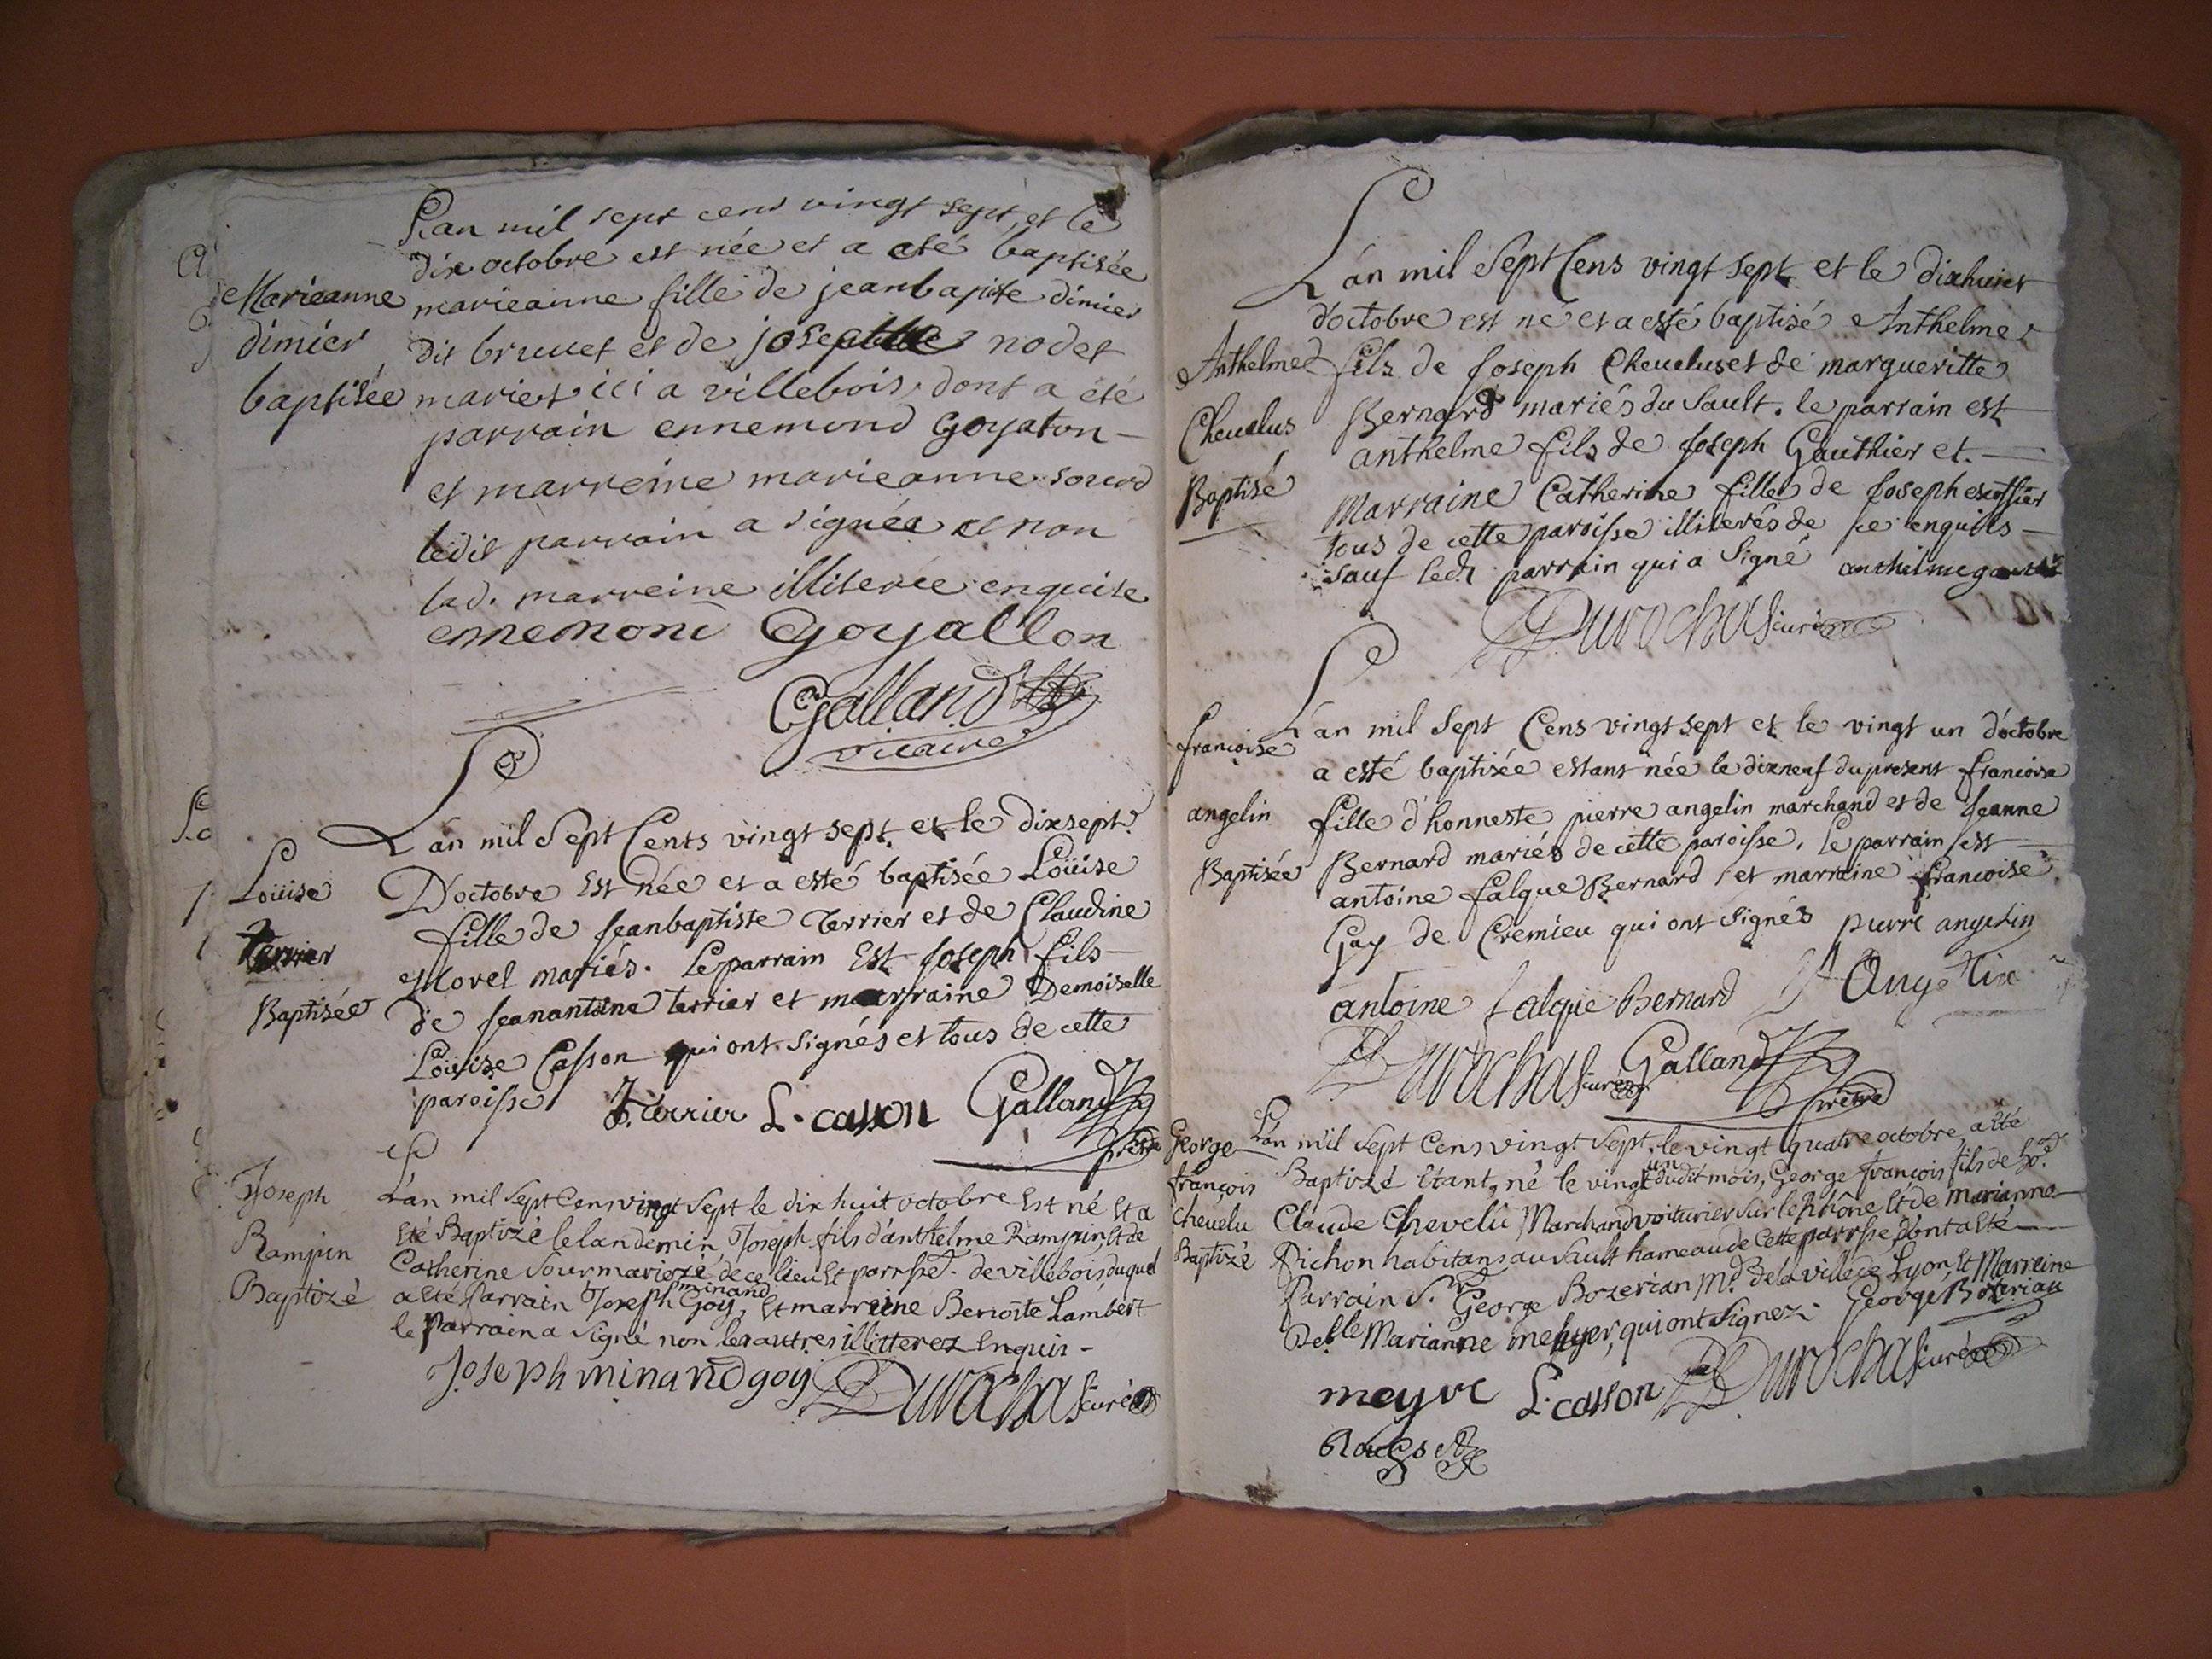 Lan mil sept cens vingt sept, et le
dix octobre est née et a eté baptisée
Marieanne marieanne fille de jeanbaptiste dimier
dimier dit bruuet et de josephte nodet
baptisée mariet ici a villebois, dont a été
parrain ennemond Goyaton
et marreine marieanne sourd
ledit parrain a signée et non
lad. marreine illiterée enquise
ennemond Goyallon
Galland
vicaire
Lan mil Sept Cents vingt sept et le dixsept
Loüise D'octobre Est née et a esté baptisée Loüise
fille de Jeanbaptiste Terrier et de Claudine
terrier Morel mariés. Le parrain Est Joseph fils
Baptisée de Jeanantoine terrier et marraine Demoiselle
Loüise Casson qui ont signés et tous de cette
paroisse J. terrier L. casson Galland
prêtre
Joseph L'an mil Sept Cens vingt Sept le dix huit octobre Est né Et a
Eté Baptizé le landemin, Joseph fils d'anthelme Rampin, Et de
Rampin Catherine Sour mariez de ce lieu Et parrsse de villebois, duquel
Baptizé a Eté Parrain Joseph minand Goy, Et marreine Benoite Lambert
le Parrain a Signé non les autres illitterez Enquis -
Joseph minand goy Durochas curé
Lan mil Sept Cens vingt Sept et le dixhuict
d'octobre est né et a esté baptisé Anthelme
Anthelme fils de Joseph Cheuelus et de margueritte
Cheuelus Bernard mariés du Sault. le parrain est
anthelme fils de Joseph Gauthier et
Baptisé Marraine Catherine fille de Joseph escoffier
tous de cette paroisse illiterés de ce enquils
sauf ledt parrain qui a Signé anthelme
Durochas curé
francoise Lan mil Sept Cens vingt sept et le vingt un d'octobre
a esté baptisée estant née le dixneuf du present francoise
angelin fille d'honneste pierre angelin marchand et de Jeanne
Baptisée Bernard mariés de cette paroisse. Le parrain est
antoine falque Bernard et marraine francoise
Guy de Cremieu qui ont Signés pierre angelin
antoine falque Bernard Angelin
Durochas curé Galland
prêtre
George L'an mil Sept Cens vingt Sept, le vingt quatre octobre, a Eté
françois Baptizé Etant, né le vingt un dudit mois, George françois fils de
Cheuelu Claude Chevelu Marchand voiturier Sur le Rhône Et de Marianne
Baptizé Pichon habitans au Sault hameau de Cette parrsse, Dont a Eté
Parrain S.r George Bozerian M.d de la ville de Lyon, Et Marreine
Delle Marianne meyer, qui ont Signez. George Bozerian
meyvr L. casson Durochas curé